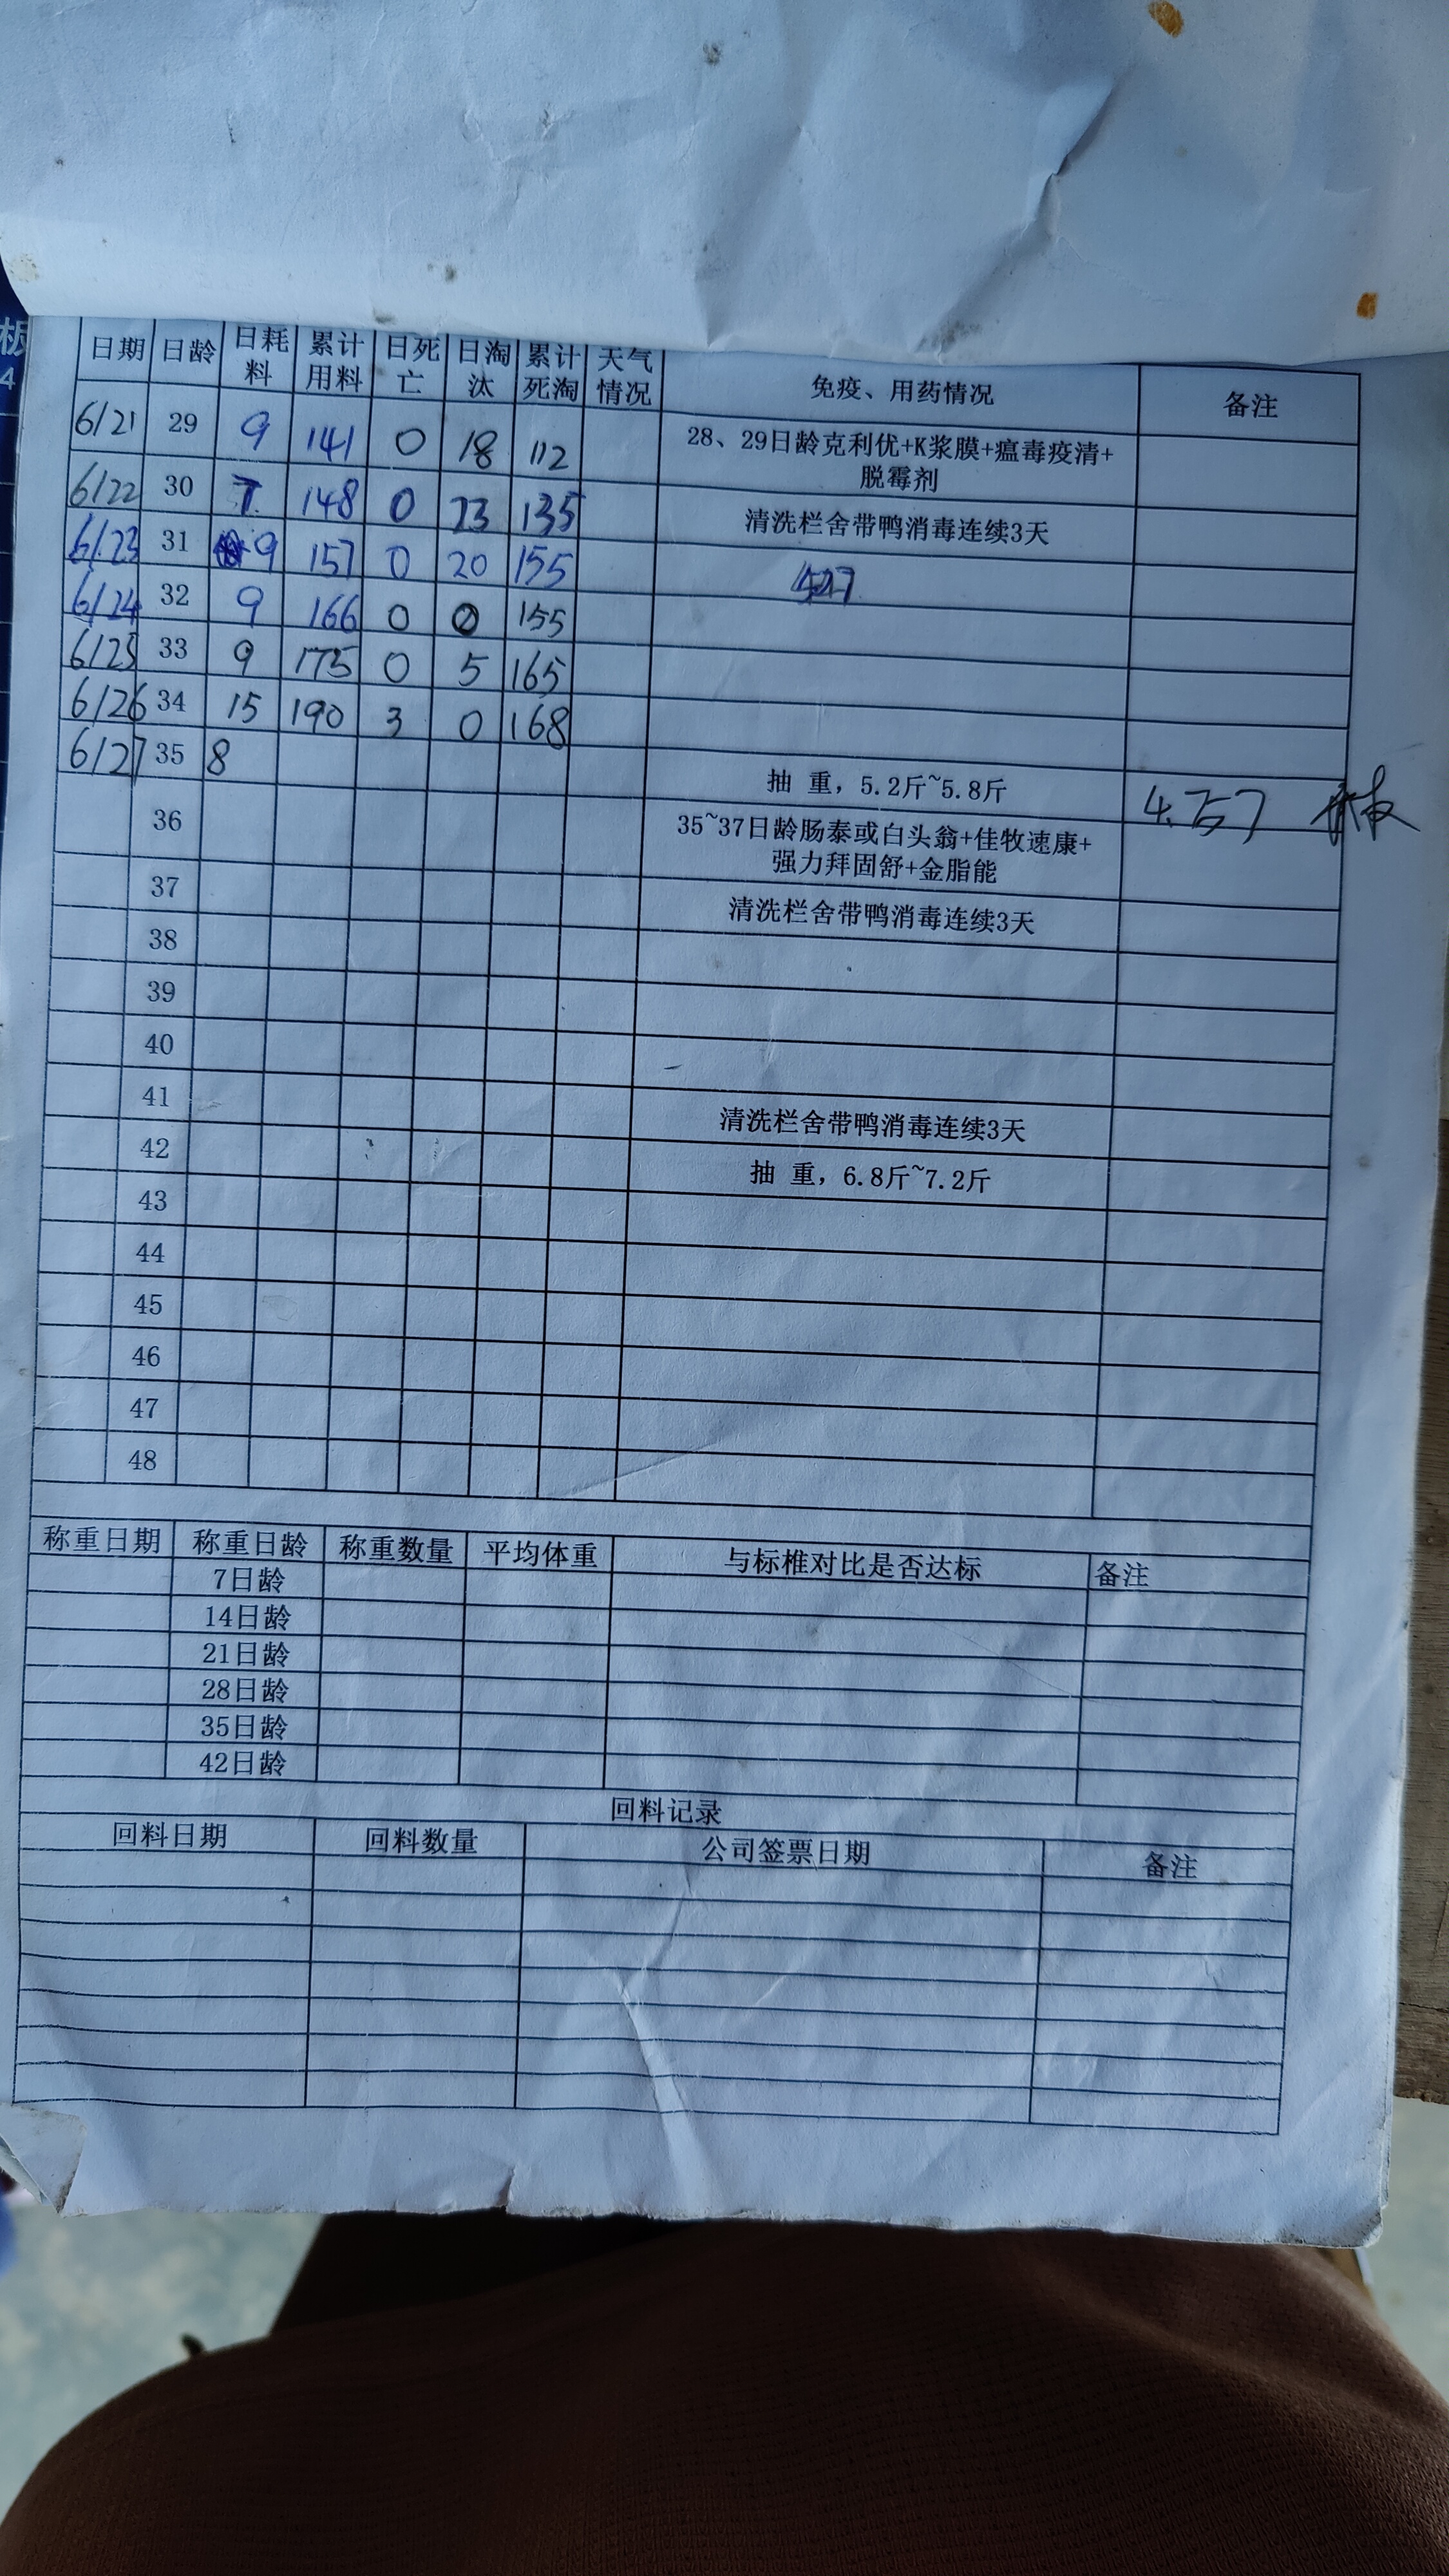 板
4
日期 日龄 日耗料 累计用料 日死亡 日淘汰 累计死淘 天气情况 免疫、用药情况 备注
6/21 29 9 141 0 18 112 28、29日龄克利优+K浆膜+瘟毒疫清+
脱霉剂
6/22 30 7 148 0 23 135 清洗栏舍带鸭消毒连续3天
6/23 31 9 157 0 20 155
6/24 32 9 166 0 0 155
6/25 33 9 175 0 5 165
6/26 34 15 190 3 0 168
6/27 35 8 抽 重，5.2斤~5.8斤 4.757
36 35~37日龄肠泰或白头翁+佳牧速康+
强力拜固舒+金脂能
37 清洗栏舍带鸭消毒连续3天
38
39
40
41 清洗栏舍带鸭消毒连续3天
42 抽 重，6.8斤~7.2斤
43
44
45
46
47
48
称重日期 称重日龄 称重数量 平均体重 与标椎对比是否达标 备注
7日龄
14日龄
21日龄
28日龄
35日龄
42日龄
回料记录
回料日期 回料数量 公司签票日期 备注